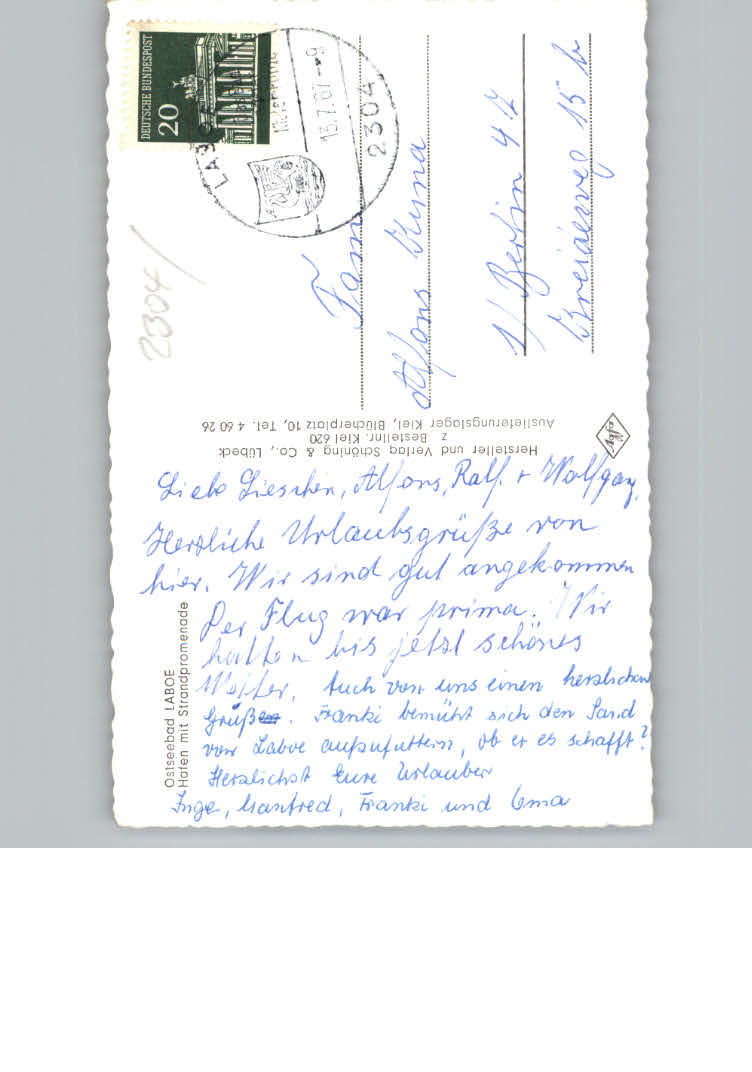 DEUTSCHE BUNDESPOST
20
LABOE
13.7.67-9
2304
2304/
Fam
Alfons Kuna
1/ Berlin 42
15 b
Hersteller und Verlag Schöning & Co., Lübeck
z Bestellnr. Kiel 620
Auslieferungslager Kiel, Blücherplatz 10, Tel. 4 60 26
Agfa
Ostseebad LABOE
Hafen mit Strandpromenade
Liebe Lieschen, Alfons, Ralf. + Wolfgang,
Herzliche Urlaubsgrüße von
hier. Wir sind gut angekommen
Der Flug war prima. Wir
hatten bis jetzt schönes
Wetter. Auch von uns einen herzlichen
Gruß. Franki bemüht sich den Sand
von Laboe aufzufuttern, ob er es schafft?
Herzlichst Eure Urlauber
Inge, Manfred, Franki und Oma